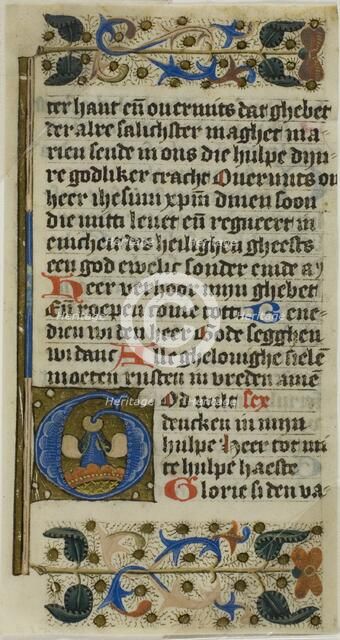 ter hant en̄ ouermits dat ghebet
der alre salichster maghet ma
rien sende in ons die hulpe dijn
re godliker cracht Ouermits ou
heer ihesum xpm̄ dinen soen
die mitti leuet en̄ regneert in
enicheit des heilighen gheests
een god ewelic sonder einde a
Heer verhoor mijn ghebet
En̄ roepen come tot ti Bene
dien wi den heer Gode segghen
wi danc Alle ghelouighe sielē
moeten rusten in vreden amē
God wilt sex
dencken in mijn
hulpe Heer tot mi
te hulpe haeste
Glorie si den va